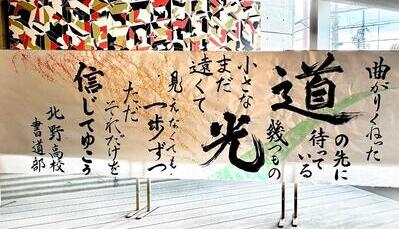 曲がりくねった
道の先に
待っている
幾つもの
小さな
光
まだ
遠くて
見えなくても
一歩ずつ
ただ
それだけを
信じてゆこう
北野高校
書道部